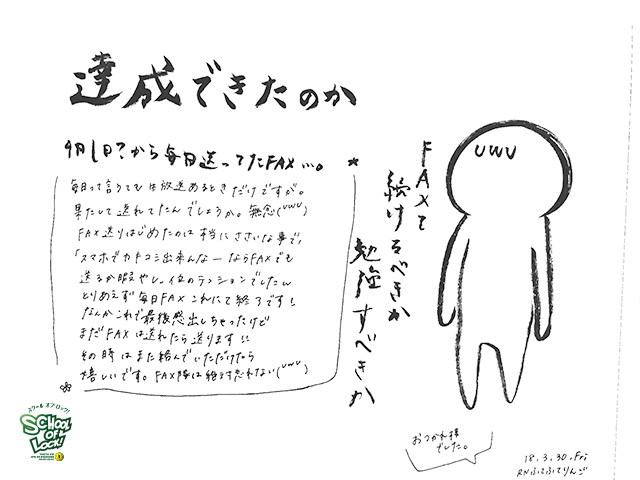 達成できたのか
9月1日?から毎日送ってたFAX…。
毎日って言っても生放送あるときだけですが。
果たして送れてたんでしょうか。無念(UWU)
FAX送りはじめたのは本当にささいな事で、
「スマホでカキコミ出来んなーならFAXでも
送るか暇やし」位のテンションでした
とりあえず毎日FAXこれにて終了です!
なんかこれで最後感出しちゃったけど
まだFAXは送れたら送ります!!
その時はまた絡んでいただけたら
嬉しいです。FAX隊は絶対忘れない(UWU)
FAXを
続けるべきか
勉強すべきか
UWU
おつかれ様
でした。
18.3.30.Fri
RNふてふてりんご
スクールオブロック!
SCHOOL
OF
LOCK!